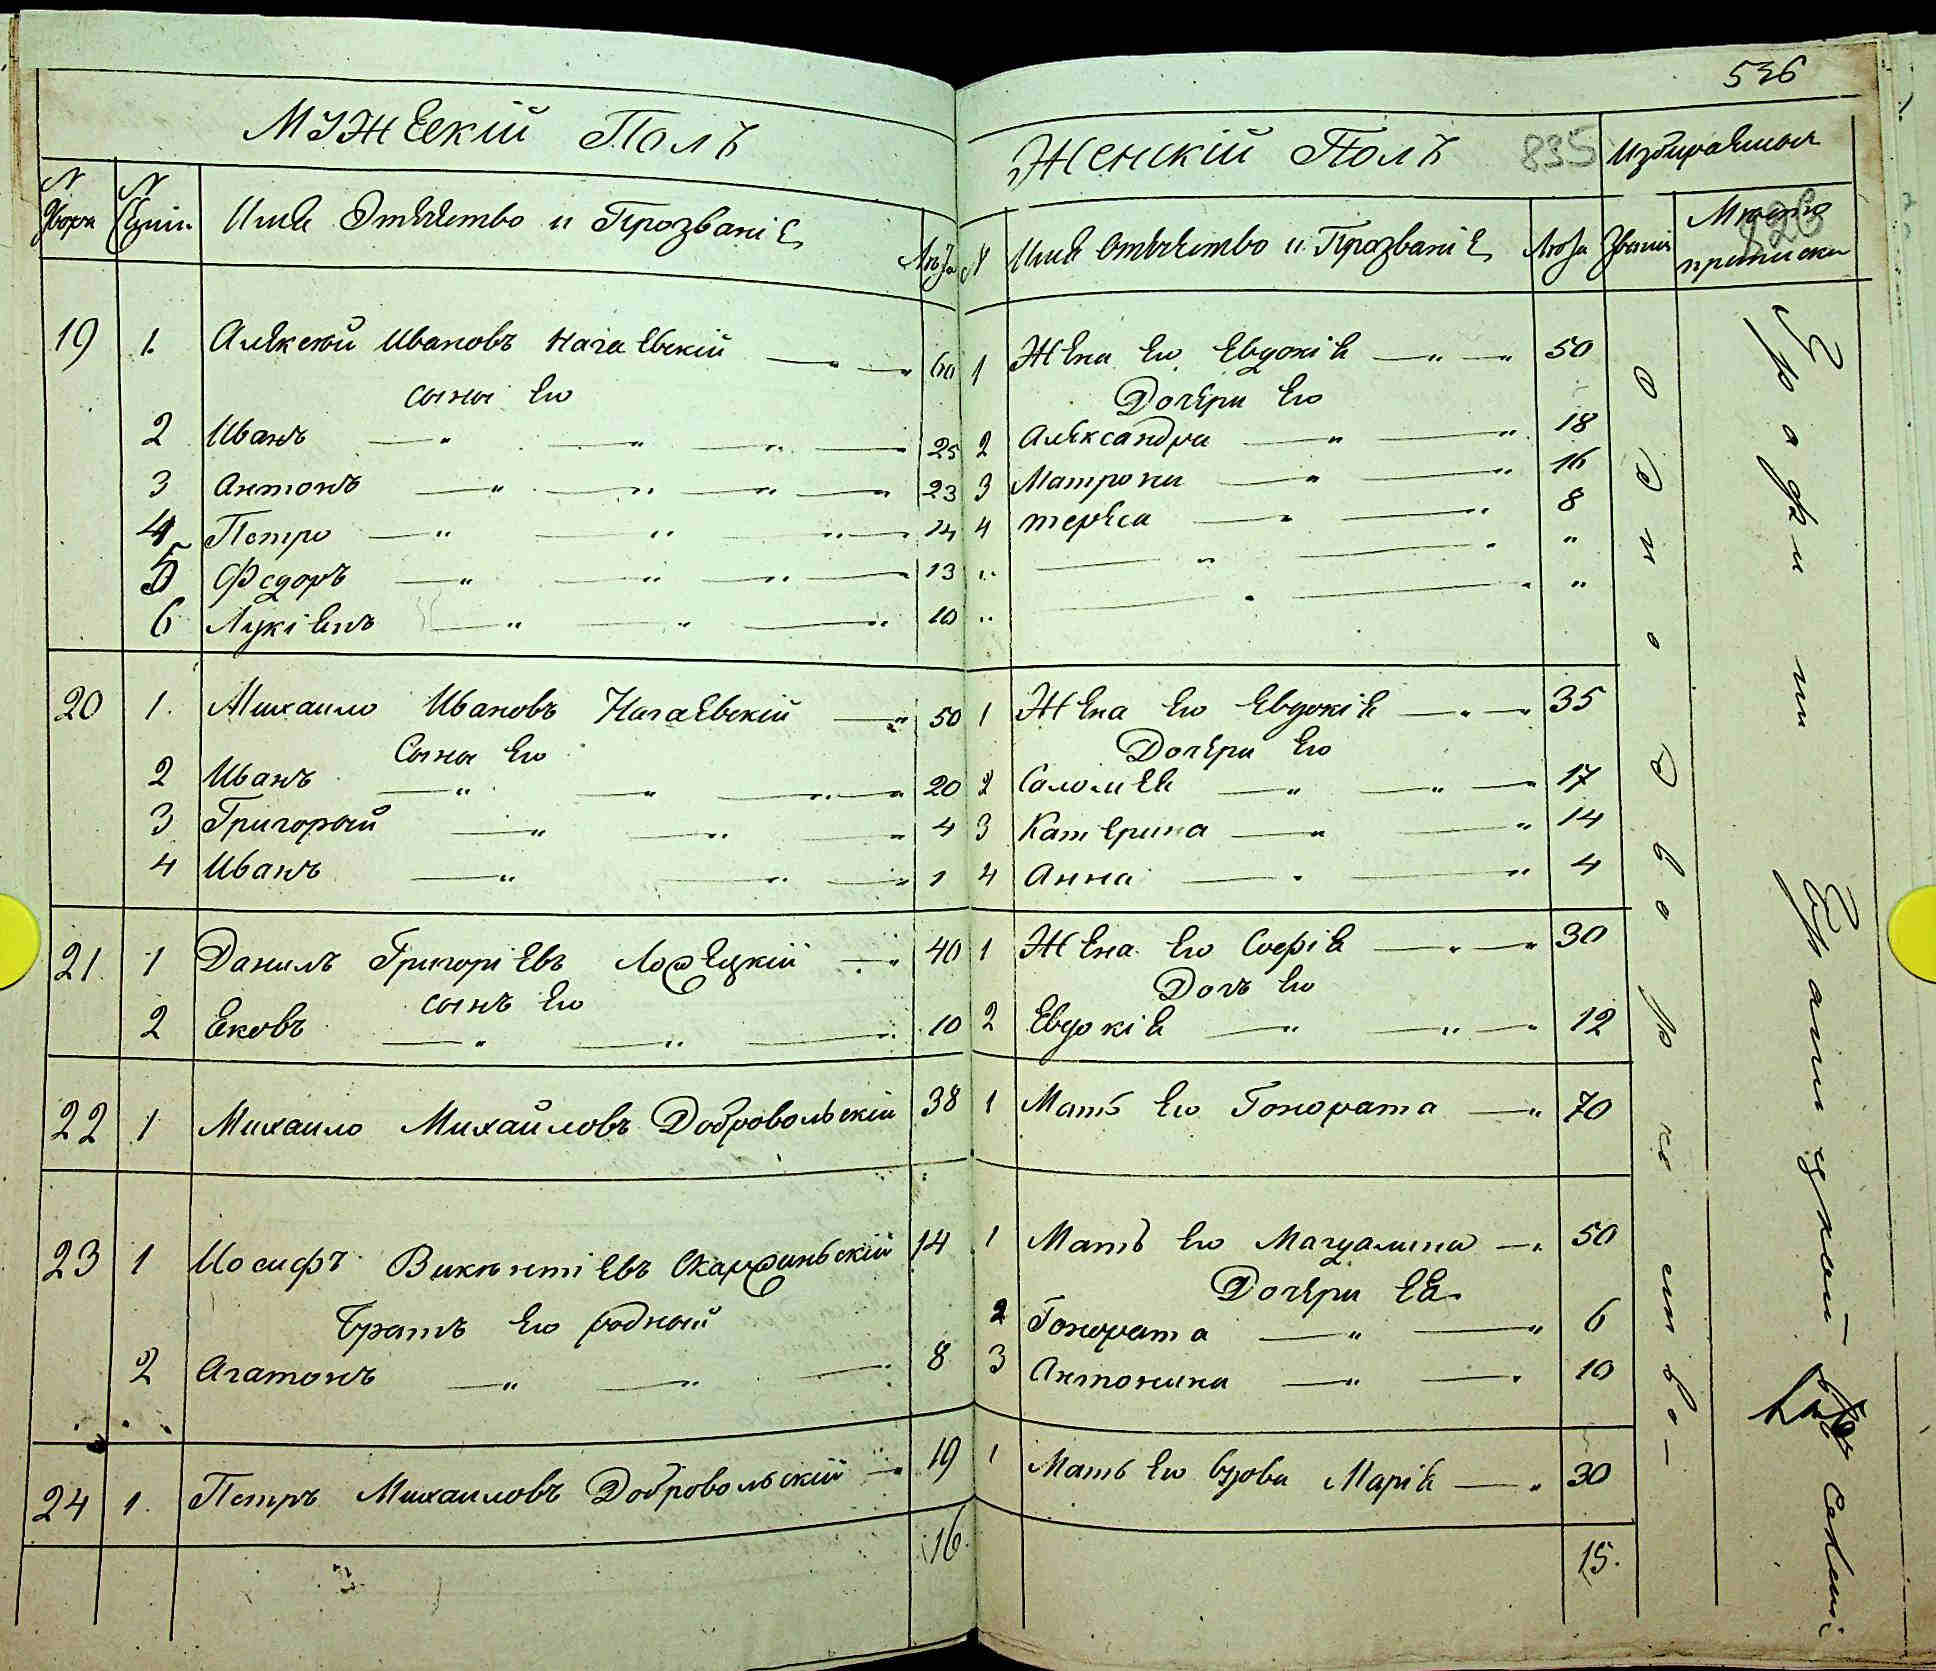 536
МУЖескій Полъ
Женскій Полъ
835
Избираемыя
N двора
N
Имя Отечество и Прозваніе
Лѣта
N
Имя Отечество и Прозваніе
Лѣта
Званія
Место приписки
826
19 1. Алексей Ивановъ Нагаевскій 60 1 Жена его Евдокія 50
сыны его Дочери его
2 Иванъ 25 2 Александра 18
3 Антонъ 23 3 Матрона 16
4 Петро 14 4 тереса 8
5 Федоръ 13
6 Лукіянъ 10
20 1. Михаило Ивановъ Нагаевскій 50 1 Жена его Евдокія 35
Сыны его Дочери его
2 Иванъ 20 2 Саломея 17
3 Григорій 4 3 Катерина 14
4 Иванъ 1 4 Анна 4
21. 1 Данилъ Григоріевъ 40 1 Жена его Софія 30
сынъ его Дочъ его
2 Яковъ 10 2 Евдокія 12
22 1 Михаило Михайловъ Добровольскій 38 1 Мать его Гонората 70
23 1 Иосифъ Викентіевъ Скаржинскій 14 1 Мать его Магдалина 50
Братъ его родный Дочери ея
2 Агатонъ 8 2 Гонората 6
3 Антонина 10
24 1. Петръ Михаиловъ Добровольскій 19 1 Мать его вдова Марія 30
16. 15.
Однодворчество
Брацлавской